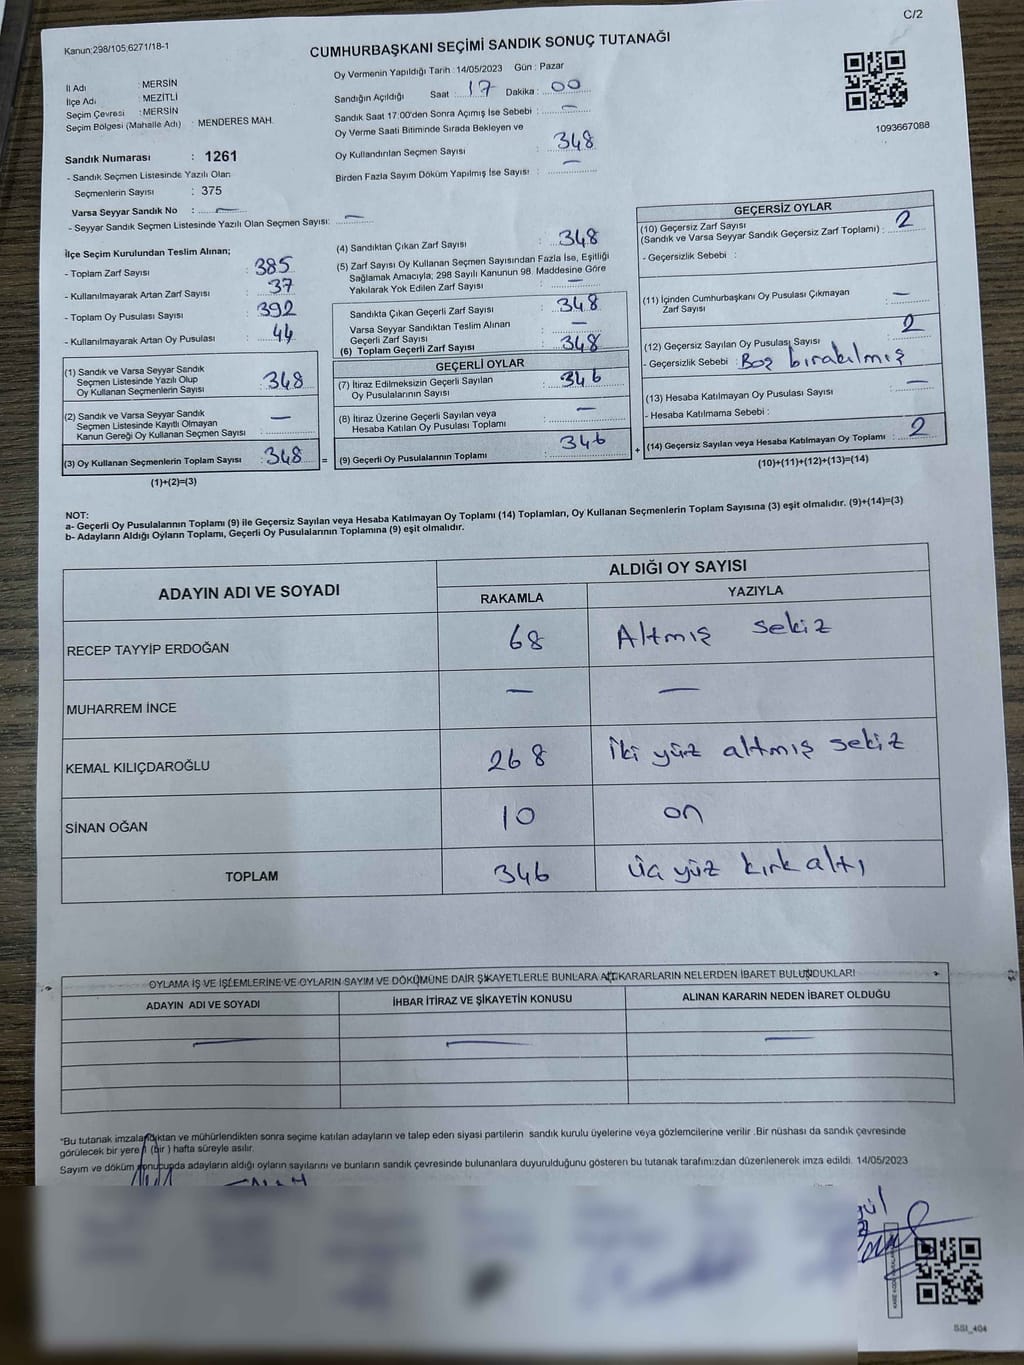 C/2
Kanun:298/105,6271/18-1
CUMHURBAŞKANI SEÇİMİ SANDIK SONUÇ TUTANAĞI
İl Adı : MERSİN
İlçe Adı : MEZİTLİ
Seçim Çevresi : MERSİN
Seçim Bölgesi (Mahalle Adı) : MENDERES MAH.
Sandık Numarası : 1261
- Sandık Seçmen Listesinde Yazılı Olan
Seçmenlerin Sayısı : 375
Varsa Seyyar Sandık No : —
- Seyyar Sandık Seçmen Listesinde Yazılı Olan Seçmen Sayısı: —
Oy Vermenin Yapıldığı Tarih : 14/05/2023 Gün : Pazar
Sandığın Açıldığı Saat : 17 Dakika : 00
Sandık Saat 17:00'den Sonra Açımış İse Sebebi : —
Oy Verme Saati Bitiminde Sırada Bekleyen ve
Oy Kullandırılan Seçmen Sayısı : 348
Birden Fazla Sayım Döküm Yapılmış İse Sayısı : —
1093667088
İlçe Seçim Kurulundan Teslim Alınan;
- Toplam Zarf Sayısı : 385
- Kullanılmayarak Artan Zarf Sayısı : 37
- Toplam Oy Pusulası Sayısı : 392
- Kullanılmayarak Artan Oy Pusulası : 44
(1) Sandık ve Varsa Seyyar Sandık
Seçmen Listesinde Yazılı Olup
Oy Kullanan Seçmenlerin Sayısı : 348
(2) Sandık ve Varsa Seyyar Sandık
Seçmen Listesinde Kayıtlı Olmayan
Kanun Gereği Oy Kullanan Seçmen Sayısı : —
(3) Oy Kullanan Seçmenlerin Toplam Sayısı : 348 =
(1)+(2)=(3)
(4) Sandıktan Çıkan Zarf Sayısı : 348
(5) Zarf Sayısı Oy Kullanan Seçmen Sayısından Fazla İse, Eşitliği
Sağlamak Amacıyla; 298 Sayılı Kanunun 98. Maddesine Göre
Yakılarak Yok Edilen Zarf Sayısı : —
Sandıkta Çıkan Geçerli Zarf Sayısı : 348
Varsa Seyyar Sandıktan Teslim Alınan
Geçerli Zarf Sayısı : —
(6) Toplam Geçerli Zarf Sayısı : 348
GEÇERLİ OYLAR
(7) İtiraz Edilmeksizin Geçerli Sayılan
Oy Pusulalarının Sayısı : 346
(8) İtiraz Üzerine Geçerli Sayılan veya
Hesaba Katılan Oy Pusulası Toplamı : —
(9) Geçerli Oy Pusulalarının Toplamı : 346 +
GEÇERSİZ OYLAR
(10) Geçersiz Zarf Sayısı
(Sandık ve Varsa Seyyar Sandık Geçersiz Zarf Toplamı) : 2
- Geçersizlik Sebebi :
(11) İçinden Cumhurbaşkanı Oy Pusulası Çıkmayan
Zarf Sayısı : —
(12) Geçersiz Sayılan Oy Pusulası Sayısı : 2
- Geçersizlik Sebebi : Boş bırakılmış
(13) Hesaba Katılmayan Oy Pusulası Sayısı : —
- Hesaba Katılmama Sebebi :
(14) Geçersiz Sayılan veya Hesaba Katılmayan Oy Toplamı : 2
(10)+(11)+(12)+(13)=(14)
NOT:
a- Geçerli Oy Pusulalarının Toplamı (9) ile Geçersiz Sayılan veya Hesaba Katılmayan Oy Toplamı (14) Toplamları, Oy Kullanan Seçmenlerin Toplam Sayısına (3) eşit olmalıdır. (9)+(14)=(3)
b- Adayların Aldığı Oyların Toplamı, Geçerli Oy Pusulalarının Toplamına (9) eşit olmalıdır.
ADAYIN ADI VE SOYADI ALDIĞI OY SAYISI
RAKAMLA YAZIYLA
RECEP TAYYİP ERDOĞAN 68 Altmış sekiz
MUHARREM İNCE — —
KEMAL KILIÇDAROĞLU 268 İki yüz altmış sekiz
SİNAN OĞAN 10 on
TOPLAM 346 üç yüz kırk altı
OYLAMA İŞ VE İŞLEMLERİNE VE OYLARIN SAYIM VE DÖKÜMÜNE DAİR ŞİKAYETLERLE BUNLARA AİT KARARLARIN NELERDEN İBARET BULUNDUKLARI
ADAYIN ADI VE SOYADI İHBAR İTİRAZ VE ŞİKAYETİN KONUSU ALINAN KARARIN NEDEN İBARET OLDUĞU
— — —
*Bu tutanak imzalandıktan ve mühürlendikten sonra seçime katılan adayların ve talep eden siyasi partilerin sandık kurulu üyelerine veya gözlemcilerine verilir .Bir nüshası da sandık çevresinde
görülecek bir yere 1 (bir ) hafta süreyle asılır.
Sayım ve döküm sonucunda adayların aldığı oyların sayılarını ve bunların sandık çevresinde bulunanlara duyurulduğunu gösteren bu tutanak tarafımızdan düzenlenerek imza edildi. 14/05/2023
SSI_404